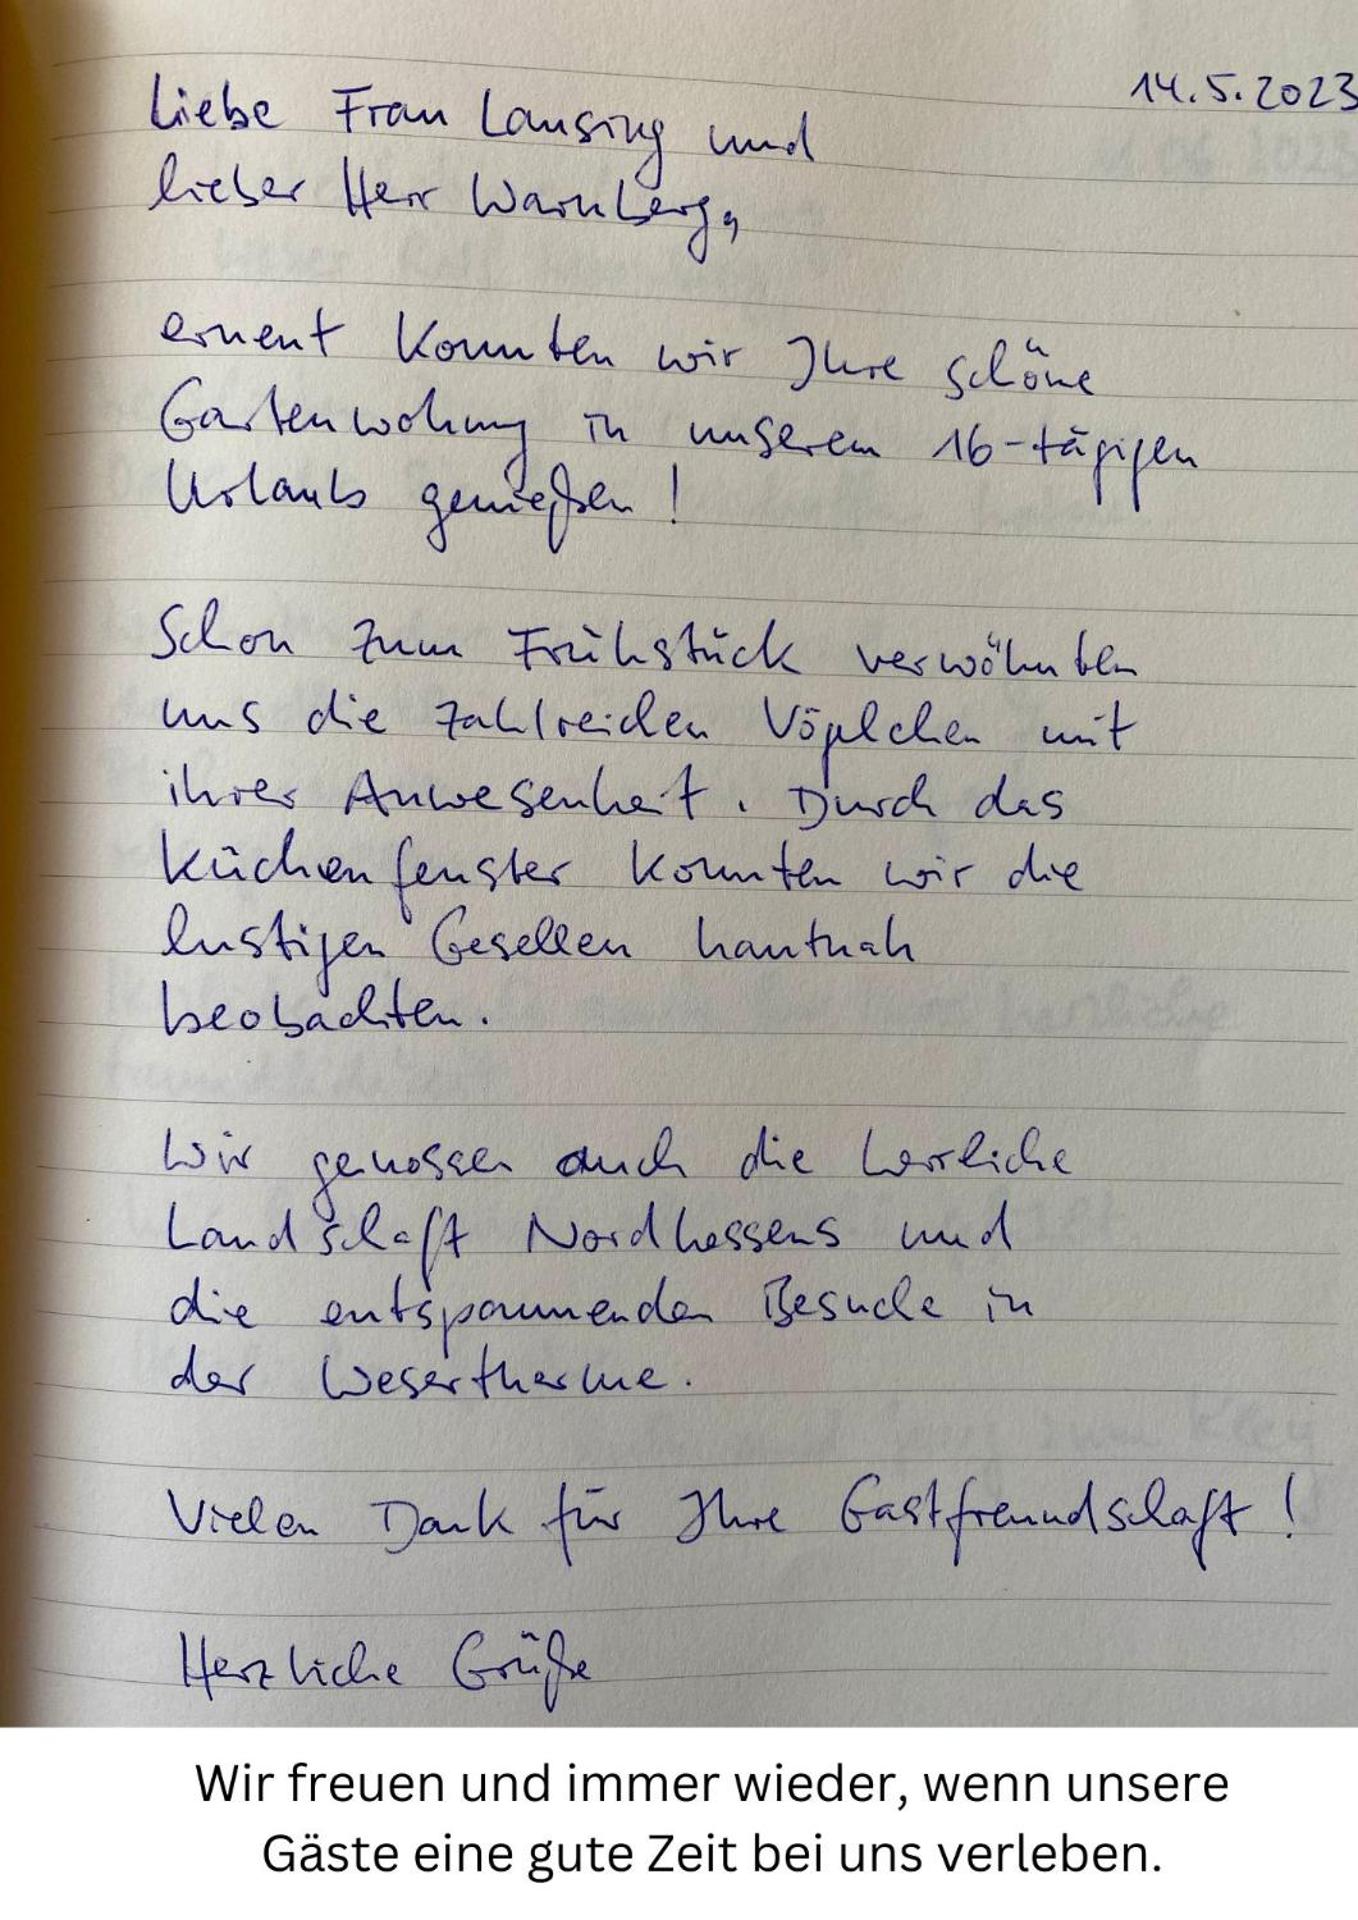 14.5.2023
Liebe Frau Lansing und
lieber Herr Warnberg,
erneut konnten wir Ihre schöne
Gartenwohnung in unserem 16-tägigen
Urlaub genießen!
Schon zum Frühstück verwöhnten
uns die zahlreichen Vögelchen mit
ihrer Anwesenheit. Durch das
Küchenfenster konnten wir die
lustigen Gesellen hautnah
beobachten.
Wir genossen auch die herrliche
Landschaft Nordhessens und
die entspannenden Besuche in
der Wesertherme.
Vielen Dank für Ihre Gastfreundschaft!
Herzliche Grüße
Wir freuen und immer wieder, wenn unsere
Gäste eine gute Zeit bei uns verleben.